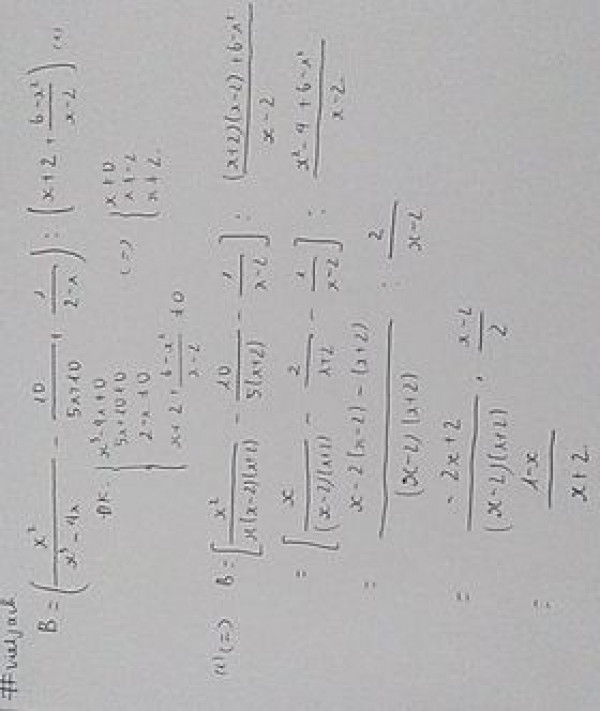 #vietjack
B = (x²/(x³ - 4x) - 10/(5x+10) + 1/(2-x)) : (x+2 + (6-x²)/(x-2)) (1)
ĐK: { x³-4x≠0
5x+10≠0
2-x≠0
x+2+(6-x²)/(x-2) ≠0
(=) { x≠0
x≠-2
x≠2.
(1) (=) B = [x²/(x(x-2)(x+2)) - 10/(5(x+2)) - 1/(x-2)] : ((x+2)(x-2)+6-x²)/(x-2)
= [x/((x-2)(x+2)) - 2/(x+2) - 1/(x-2)] : (x²-4+6-x²)/(x-2)
= (x-2(x-2)-(x+2))/((x-2)(x+2)) : 2/(x-2)
= (-2x+2)/((x-2)(x+2)) . (x-2)/2
= (1-x)/(x+2)